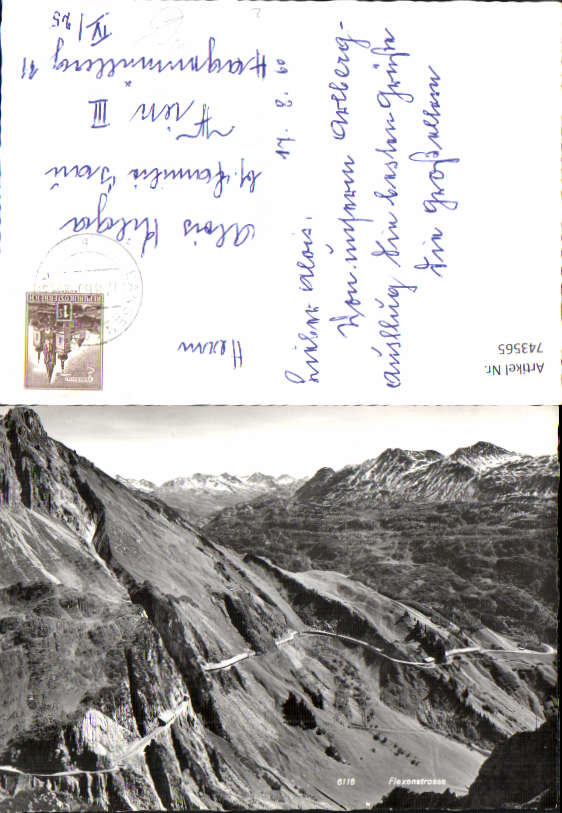 Lieber Alois.
Von unserm Arlberg-
ausflug die besten Grüße
die Großeltern
17. 8. 60
Herrn
Alois
b. Familie
Wien III
IV/25
REPUBLIK ÖSTERREICH
Artikel Nr.
743565
6118 Flexenstrasse